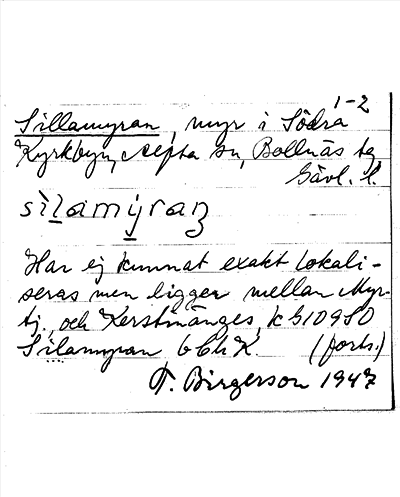 1-2
Sillamyran, myr i Södra
Kyrkbyn, Alfta sn, Bollnäs tg
Gävl. l.
sìlamýran
Har ej kunnat exakt lokali-
seras men ligger mellan Myr-
tj. och Kerstinänges, k G10950
Silamyran GbhK. (forts.)
T. Birgerson 1947